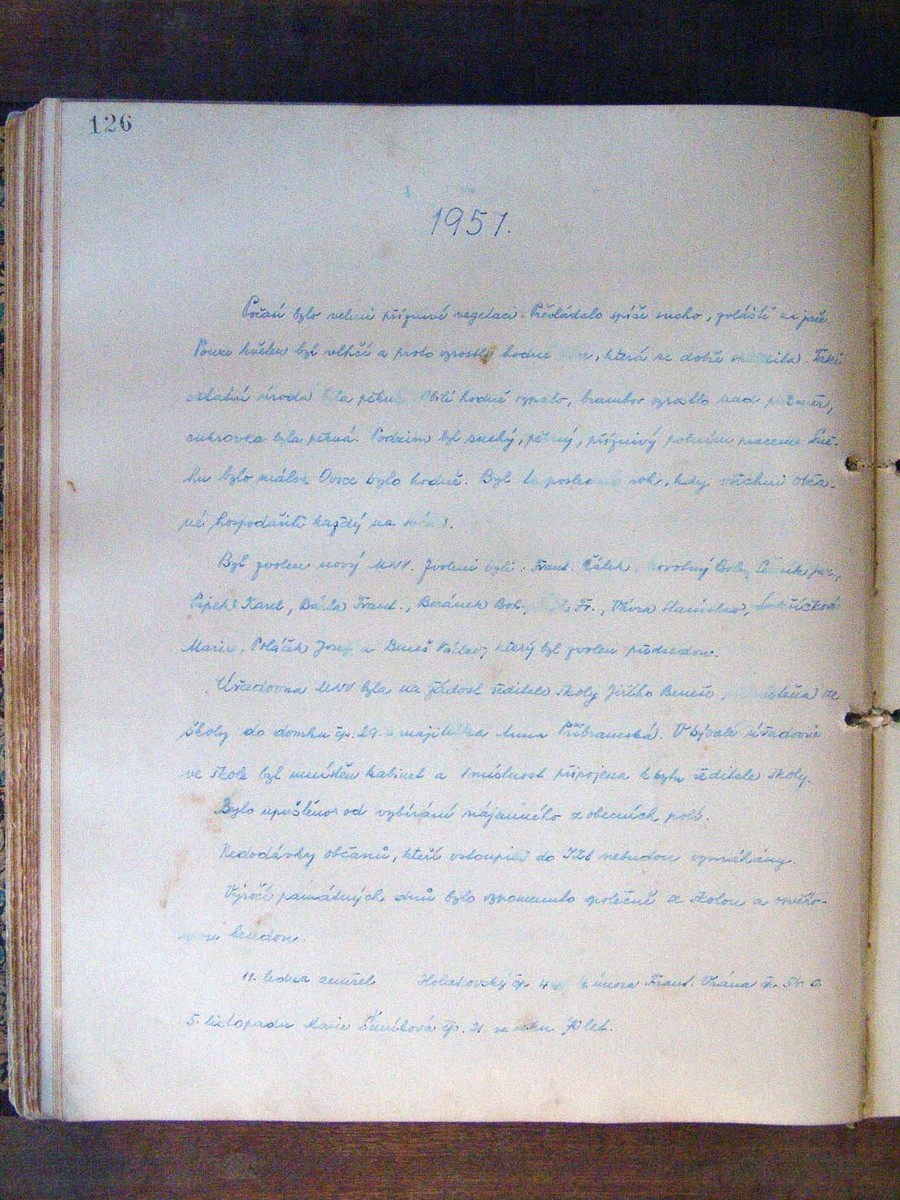 126
1951.
Počasí bylo velmi příznivé vegetaci. Převládalo spíše sucho, zvláště na jaře.
Pouze květen byl vlhčí a proto vzrostlo hodně, která se dobře. Také
ostatní úroda byla pěkná. Obilí hodně sypalo, brambor vzrostlo nad průměr,
cukrovka byla pěkná. Podzim byl suchý, pěkný, příznivý polním pracem. Sně-
hu bylo málo. Ovoce bylo hodně. Byl to poslední rok, kdy všichni obča-
né hospodařili každý na svém.
Byl zvolen nový MNV. Zvoleni byli: Frant. Čálek, Novotný Boh., jar.,
Pipek Karel, Bárta Frant., Beránek Boh., Fr., Vávra Stanislav,
Marie, Poláček Josef a Beneš Václav, který byl zvolen předsedou.
Úřadovna MNV byla na žádost ředitele školy Jiřího Beneše ze
školy do domku čp. 29. majitelka Anna Příbramská. V bývalé úřadovně
ve škole byl umístěn kabinet a 1 místnost připojena k bytu ředitele školy.
Bylo upuštěno od vybírání nájemného z obecních polí.
Nedodávky občanů, kteří vstoupili do JZD nebudou vymáhány.
Výročí památných dnů bylo vzpomenuto společně se školou a osvěto-
vou besedou.
11. ledna zemřel Holatovský čp. 4 února Frant. Vrána č. 5
5. listopadu Marie čp. 21. ve věku 70 let.